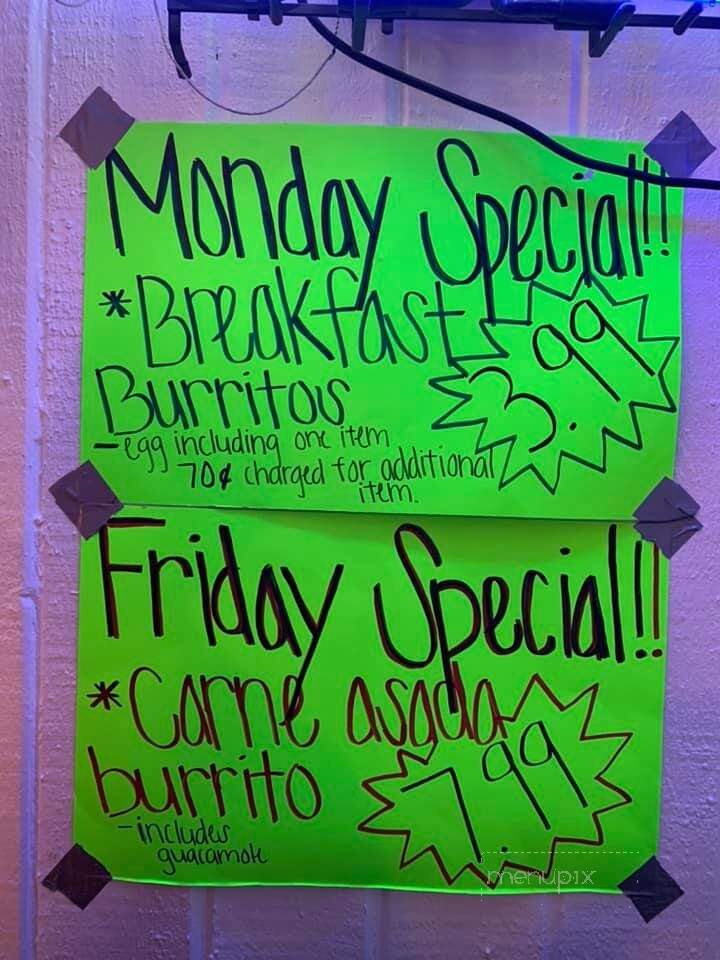 Monday Special!!
*Breakfast
Burritos
3.99
-egg including one item
70¢ charged for additional
item.
Friday Special!!
*Carne asada
burrito
7.99
-includes
guacamole
menupix